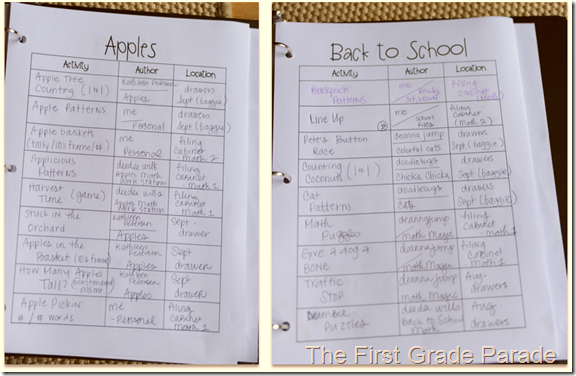 Apples
Activity Author Location
Apple Tree Kathleen Pedersen drawers
Counting (1 to 1) Apples Sept (baggie)
Apple Patterns me drawers
Personal Sept (baggie)
Apple baskets me filing
(tally/10s frame/#) Personal cabinet math 2
Applicious deedee wills filing
Patterns Apples Math Work Station cabinet - math 1
Harvest deedee wills filing
Time (game) Apples Math Work Station cabinet - math 1
Stuck in the Kathleen Pedersen Sept -
Orchard Apples drawer
Apples in the Kathleen Pedersen Sept
Basket (10s frame) Apples drawer
How Many Apples Kathleen Pedersen Sept
Tall? Apples drawer
Apple Pickin' me filing
#/# words - Personal cabinet math 1
Back to School
Activity Author Location
Backpack me filing
Patterns cabinet
Line Up me filing
school files cabinet math 2
Pete's Button deanna jump drawers
Race colorful cats Sept (baggie)
Counting doodlebugs drawers
Coconuts (1 to 1) Chicka Chicka Sept (baggie)
Cat doodlebugs drawers
Patterns cats Sept (baggie)
Math deanna jump filing
Puzzles math Magic cabinet - math 1
Give a dog a deanna jump filing
BONE math Magic cabinet math 1
Traffic deanna jump Aug-
STOP math Magic drawers
Number deedee wills Aug-
Puzzles Back to School Math drawers
The First Grade Parade